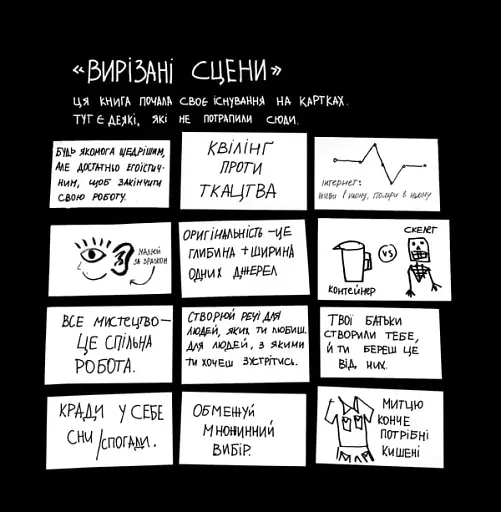 «ВИРІЗАНІ СЦЕНИ»
ЦЯ КНИГА ПОЧАЛА СВОЄ ІСНУВАННЯ НА КАРТКАХ.
ТУТ Є ДЕЯКІ, ЯКІ НЕ ПОТРАПИЛИ СЮДИ.
БУДЬ ЯКОМОГА ЩЕДРІШИМ,
АЛЕ ДОСТАТНЬО ЕГОЇСТИЧ-
НИМ, ЩОБ ЗАКІНЧИТИ
СВОЮ РОБОТУ.
КВІЛІНГ
ПРОТИ
ТКАЦТВА
ІНТЕРНЕТ:
ЖИВИ В НЬОМУ, ПОМРИ В НЬОМУ
НАДІЙ
ЗА ЗРАЗКОМ
ОРИГІНАЛЬНІСТЬ – ЦЕ
ГЛИБИНА + ШИРИНА
ОДНИХ ДЖЕРЕЛ
КОНТЕЙНЕР
VS
СКЕЛЕТ
ВСЕ МИСТЕЦТВО –
ЦЕ СПІЛЬНА
РОБОТА.
СТВОРЮЙ РЕЧІ ДЛЯ
ЛЮДЕЙ, ЯКИХ ТИ ЛЮБИШ.
ДЛЯ ЛЮДЕЙ, З ЯКИМИ
ТИ ХОЧЕШ ЗУСТРІТИСЬ.
ТВОЇ БАТЬКИ
СТВОРИЛИ ТЕБЕ,
Й ТИ БЕРЕШ ЦЕ
ВІД НИХ.
КРАДИ У СЕБЕ
СНИ/СПОГАДИ.
ОБМЕЖУЙ
МНОЖИННИЙ
ВИБІР.
МИТЦЮ
КОНЧЕ
ПОТРІБНІ
КИШЕНІ